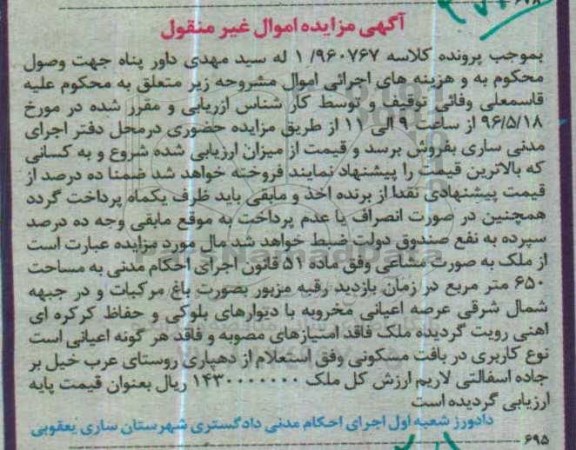 آگهی مزایده اموال غیر منقول
بموجب پرونده کلاسه ۹۶۰۷۶۷/ ۱ له سید مهدی داور پناه جهت وصول
محکوم به و هزینه های اجرائی اموال مشروحه زیر متعلق به محکوم علیه
قاسمعلی وفائی توقیف و توسط کار شناس ارزیابی و مقرر شده در مورخ
۹۶/۵/۱۸ از ساعت ۹ الی ۱۱ از طریق مزایده حضوری درمحل دفتر اجرای
مدنی ساری بفروش برسد و قیمت از میزان ارزیابی شده شروع و به کسانی
که بالاترین قیمت را پیشنهاد نمایند فروخته خواهد شد ضمنا ده درصد از
قیمت پیشنهادی نقدا از برنده اخذ و مابقی باید ظرف یکماه پرداخت گردد
همچنین در صورت انصراف یا عدم پرداخت به موقع مابقی وجه ده درصد
سپرده به نفع صندوق دولت ضبط خواهد شد مال مورد مزایده عبارت است
از ملک به صورت مشاعی وفق ماده ۵۱ قانون اجرای احکام مدنی به مساحت
۶۵۰ متر مربع در زمان بازدید رقبه مزبور بصورت باغ مرکبات و در جبهه
شمال شرقی عرصه اعیانی مخروبه با دیوارهای بلوکی و حفاظ کرکره ای
اهنی رویت گردیده ملک فاقد امتیازهای مصوبه و فاقد هر گونه اعیانی است
نوع کاربری در بافت مسکونی وفق استعلام از دهیاری روستای عرب خیل بر
جاده اسفالتی لاریم ارزش کل ملک ۱۴۳۰۰۰۰۰۰۰ ریال بعنوان قیمت پایه
ارزیابی گردیده است
دادورز شعبه اول اجرای احکام مدنی دادگستری شهرستان ساری یعقوبی
۶۹۵